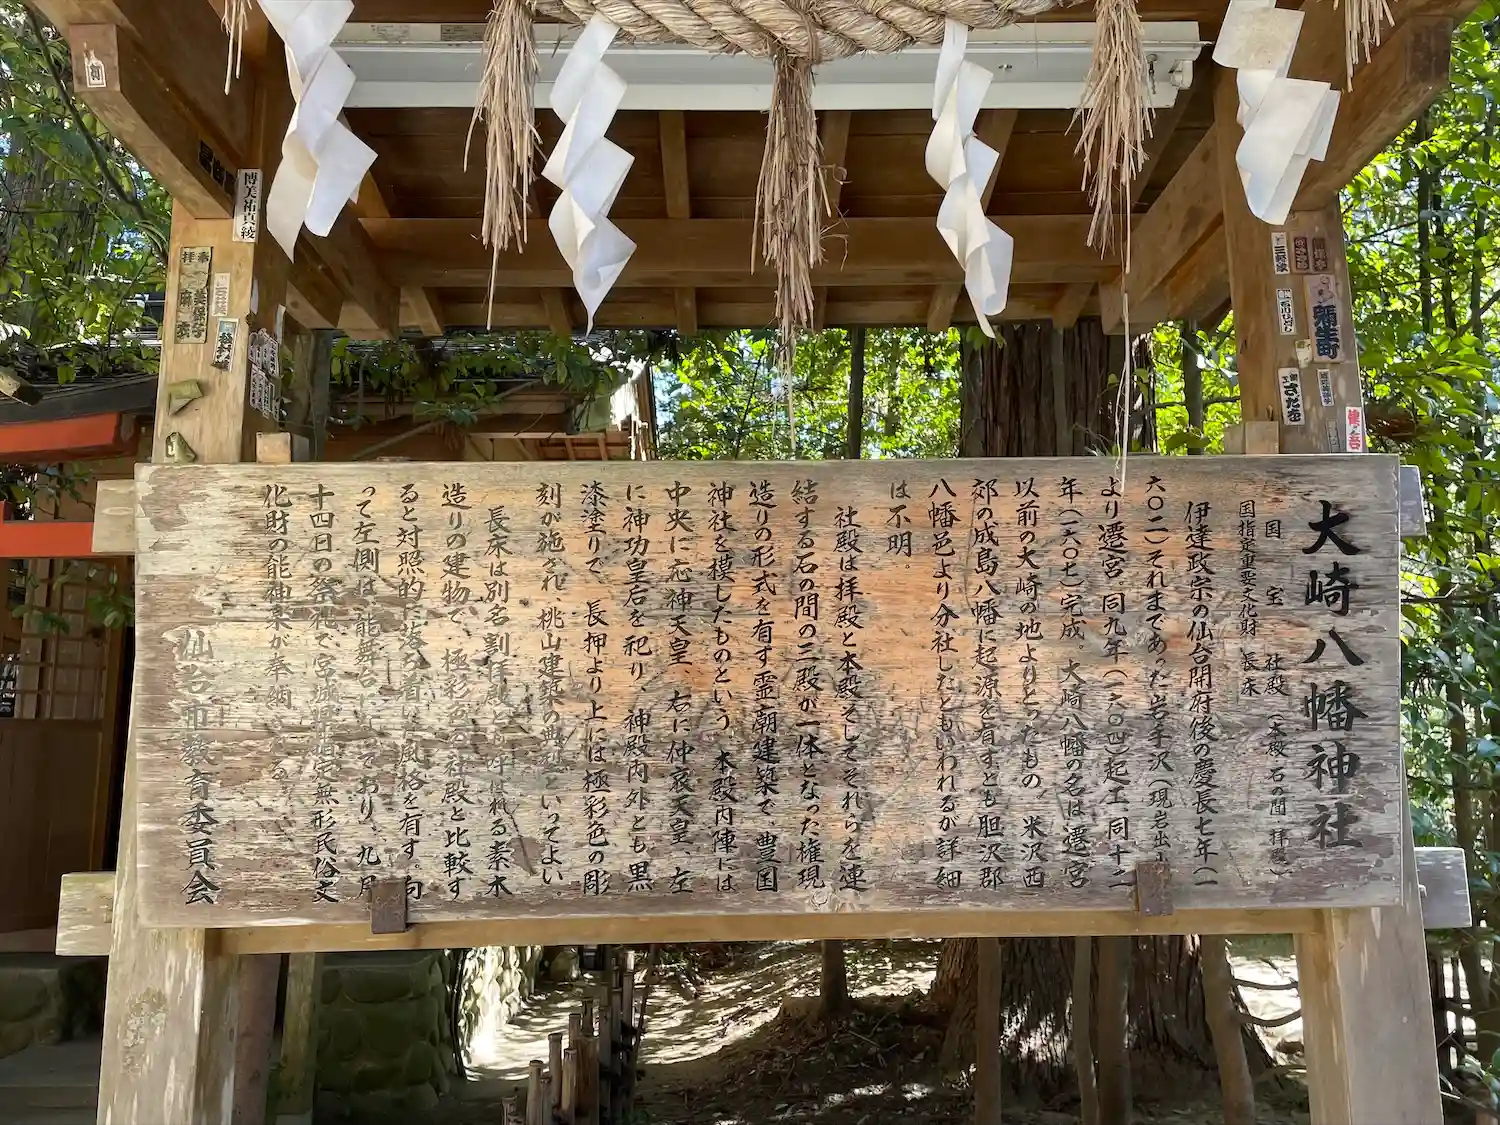 大崎八幡神社
国宝 社殿(本殿 石の間 拝殿)
国指定重要文化財 長床
伊達政宗の仙台開府後の慶長七年(一
六〇二)それまであった岩手沢(現岩出山
より遷宮。同九年(一六〇四)起工、同十二
年(一六〇七)完成。大崎八幡の名は遷宮
以前の大崎の地よりとったもの。米沢西
郊の成島八幡に起源を有すとも胆沢郡
八幡邑より分社したともいわれるが詳細
は不明。
社殿は拝殿と本殿そしてそれらを連
結する石の間の三殿が一体となった権現
造りの形式を有す霊廟建築で、豊国
神社を模したものという。本殿内陣には
中央に応神天皇、右に仲哀天皇、左
に神功皇后を祀り、神殿内外とも黒
漆塗りで、長押より上には極彩色の彫
刻が施され、桃山建築の典型といってよい
長床は別名割拝殿とも呼ばれる素木
造りの建物で、極彩色の社殿と比較す
ると対照的に落ち着いた風格を有す。向
って左側は、能舞台 ており、九月
十四日の祭礼で宮城県指定無形民俗文
化財の能神楽が奉納される
仙台市教育委員会
博美祐真綾
拝奉
龍生町
さだを
三軽家